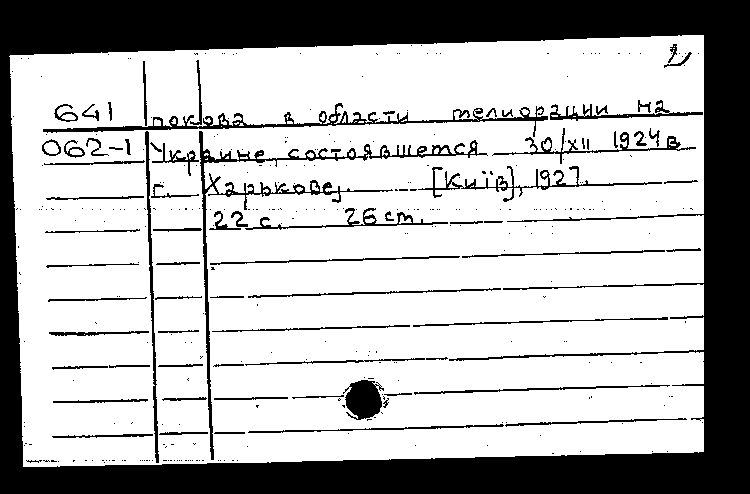 2
641 покова в области мелиорации на
062-1 Украине, состоявшется 30/XII 1924 в
г. Харькове]. [Київ], 1927.
22 с. 26 cm.